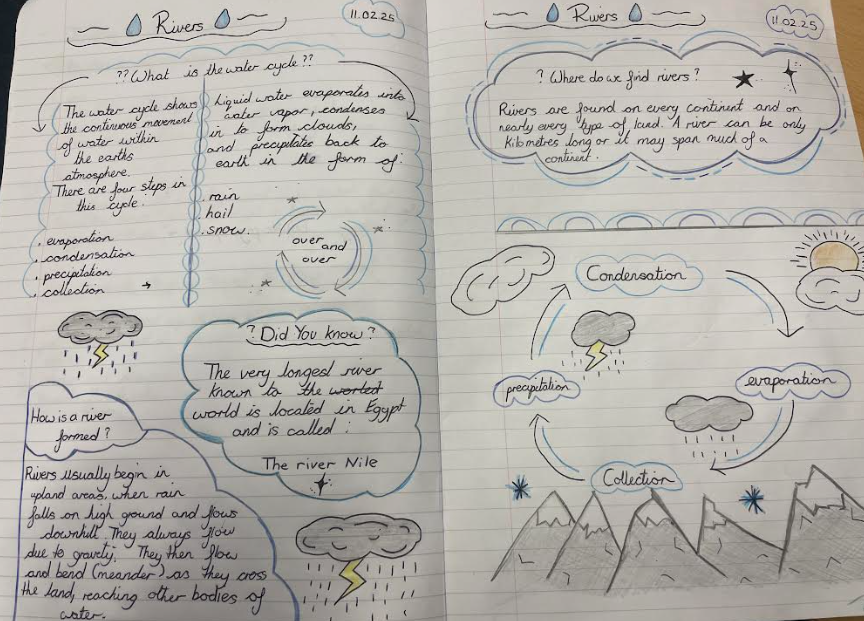 Rivers
11.02.25
?? What is the water cycle ??
The water cycle shows
the continuous movement
of water within
the earths
atmosphere.
There are four steps in
this cycle.
. evaporation
. condensation
. precipitation
. collection
Liquid water evaporates into
water vapor, condenses
in to form clouds,
and precipitates back to
earth in the form of:
. rain
. hail
. snow.
over and
over
? Did You know?
The very longest river
known to the worled
world is located in Egypt
and is called :
The river Nile
How is a river
formed?
Rivers usually begin in
upland areas, when rain
falls on high ground and flows
downhill. They always flow
due to gravity. They then flow
and bend (meander) as they cross
the land, reaching other bodies of
water.
Rivers
11.02.25
? Where do we find rivers?
Rivers are found on every continent and on
nearly every type of land. A river can be only
kilometres long or it may span much of a
continent.
Condensation
precipitation
evaporation
Collection